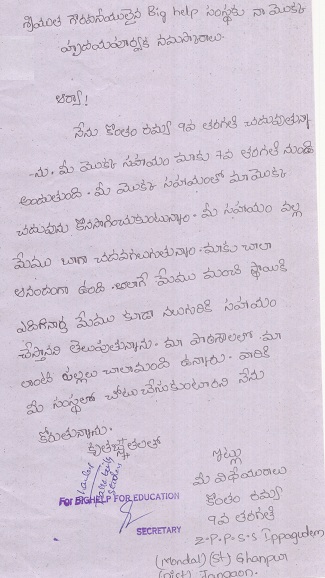 శ్రీయుత గౌరవనీయులైన Big help సంస్థకు నా మొక్క
హృదయపూర్వక నమస్కారాలు.
ఆర్యా!
నేను కొంతం రమ్య 9వ తరగతి చదువుతున్నా
-ను. మీ మొక్క సహాయం మాకు 7వ తరగతి నుండి
అందుతుంది. మీ మొక్క సహాయంతో మా మొక్క
చదువును కొనసాగించుకుంటున్నాం. మీ సహాయం వల్ల
మేము బాగా చదవగలుగుతున్నాం. మాకు చాలా
ఆనందంగా ఉంది. అలాగే మేము మంచి స్థాయికి
ఎదిగినాక మేము కూడా నలుగురికి సహాయం
చేస్తానని తెలుపుతున్నాను. మా పాఠశాలలో మా
లాంటి పిల్లలు చాలామంది ఉన్నారు. వారికి
మీ సంస్థలో చోటు చేసుకుంటారని నేను
కోరుతున్నాను.
కృతజ్ఞతలతో
ఇట్లు
మీ విధేయురాలు
కొంతం రమ్య
9వ తరగతి
Z.P.P.S.S Ippagudem
(Mondal) (St) Ghanpur
(Dist) Jangaon.
For BIGHELP FOR EDUCATION
SECRETARY